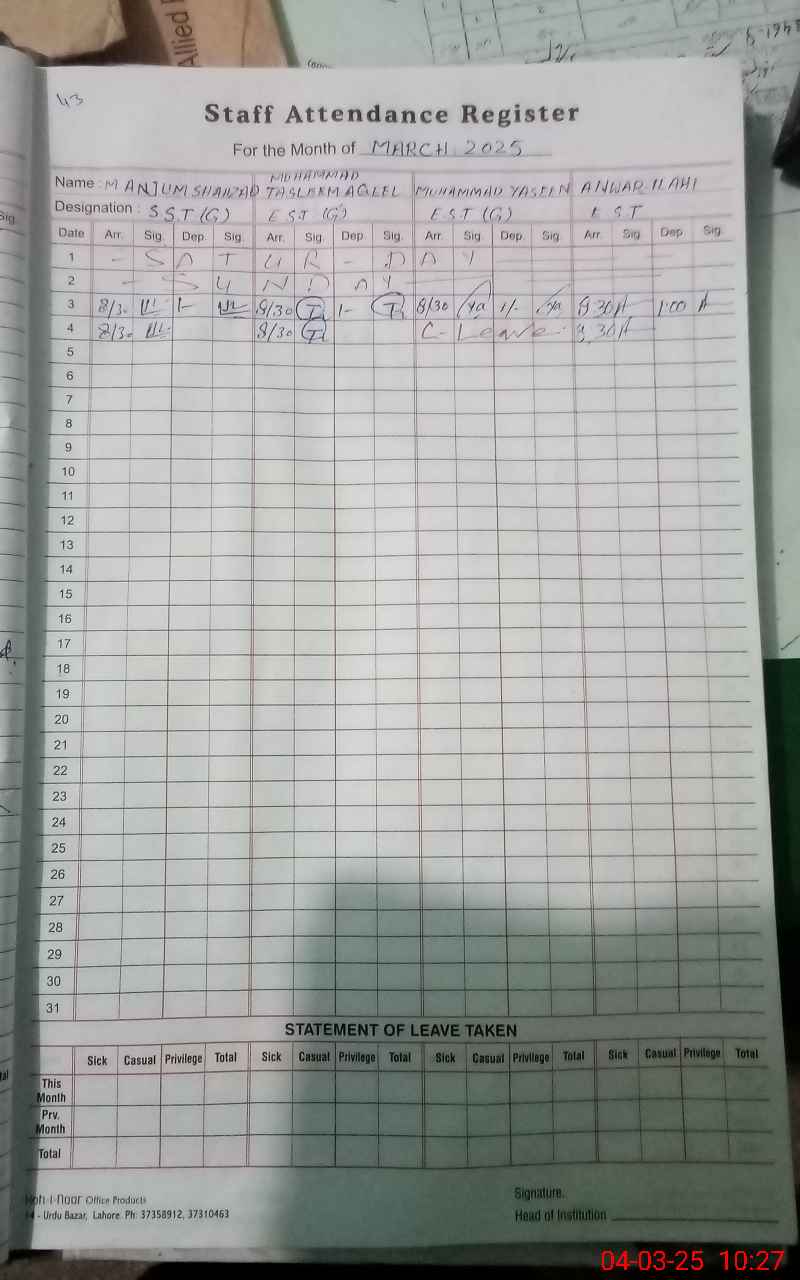 43
Staff Attendance Register
For the Month of MARCH 2025
Name : MANJUM SHAHZAD MUHAMMAD TASLEEM AQEEL MUHAMMAD YASEEN ANWAR ILAHI
Designation : S S.T (G) E S.T (G) E S.T (G) E S.T
Date Arr. Sig. Dep. Sig. Arr. Sig. Dep. Sig. Arr. Sig. Dep. Sig. Arr. Sig. Dep. Sig.
1 - S A T U R - D A Y
2 - S U N D A Y
3 8/30 1- 8/30 1- 8/30 Ya 1/- Ya 8 30 A 1:00 A
4 8/30 8/30 C - Leave 8 30 A
5
6
7
8
9
10
11
12
13
14
15
16
17
18
19
20
21
22
23
24
25
26
27
28
29
30
31
STATEMENT OF LEAVE TAKEN
Sick Casual Privilege Total Sick Casual Privilege Total Sick Casual Privilege Total Sick Casual Privilege Total
This Month
Prv. Month
Total
Koh-i-Noor Office Products
- Urdu Bazar, Lahore. Ph: 37358912, 37310463
Signature.
Head of Institution
04-03-25 10:27
Allied